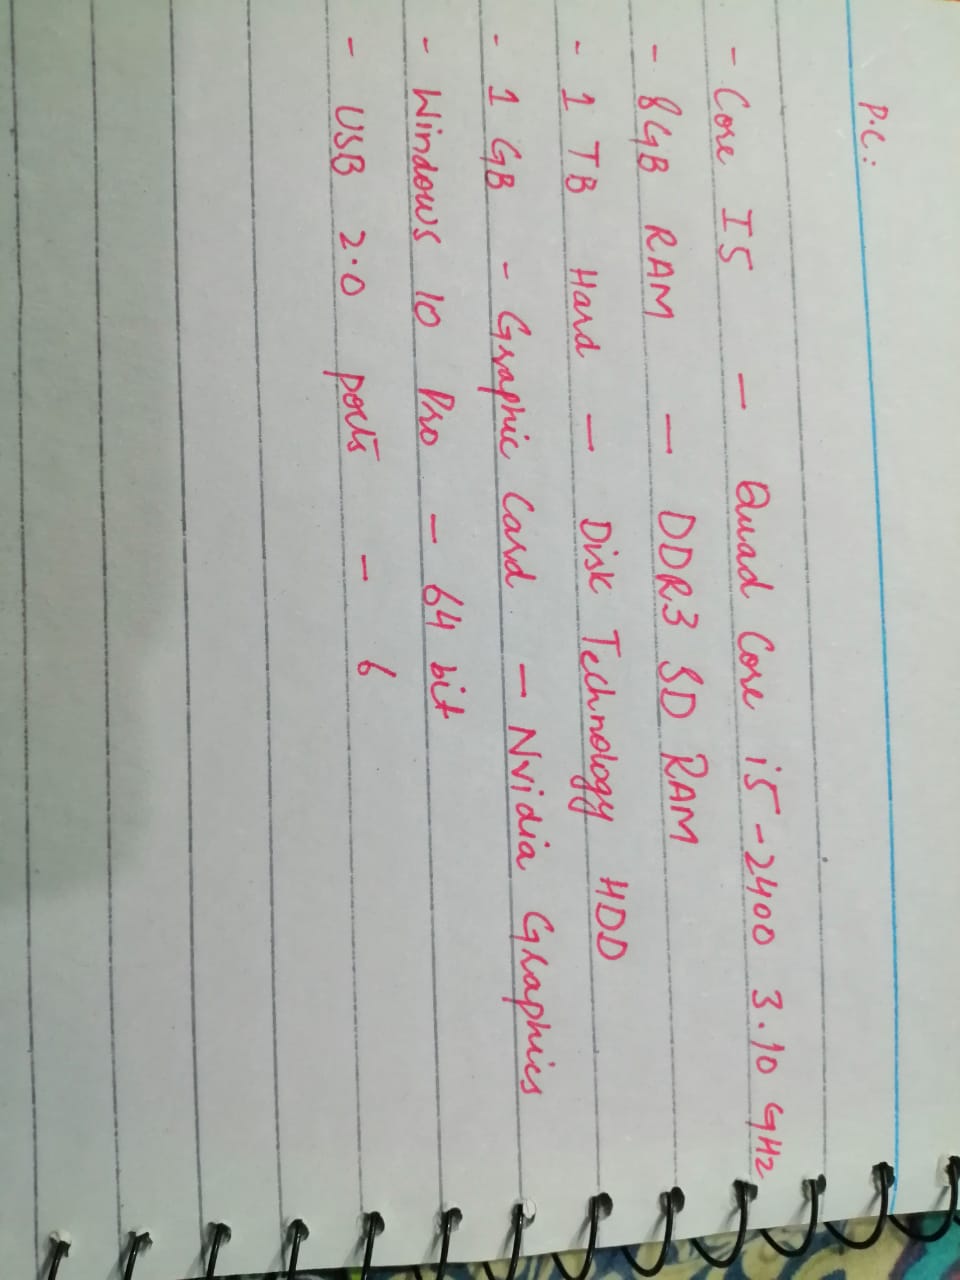 P.C:
- Core I5 — Quad Core i5-2400 3.10 GHz
- 8GB RAM — DDR3 SD RAM
- 1 TB Hard — Disk Technology HDD
- 1 GB - Graphic Card — Nvidia Graphics
- Windows 10 Pro — 64 bit
- USB 2.0 ports - 6